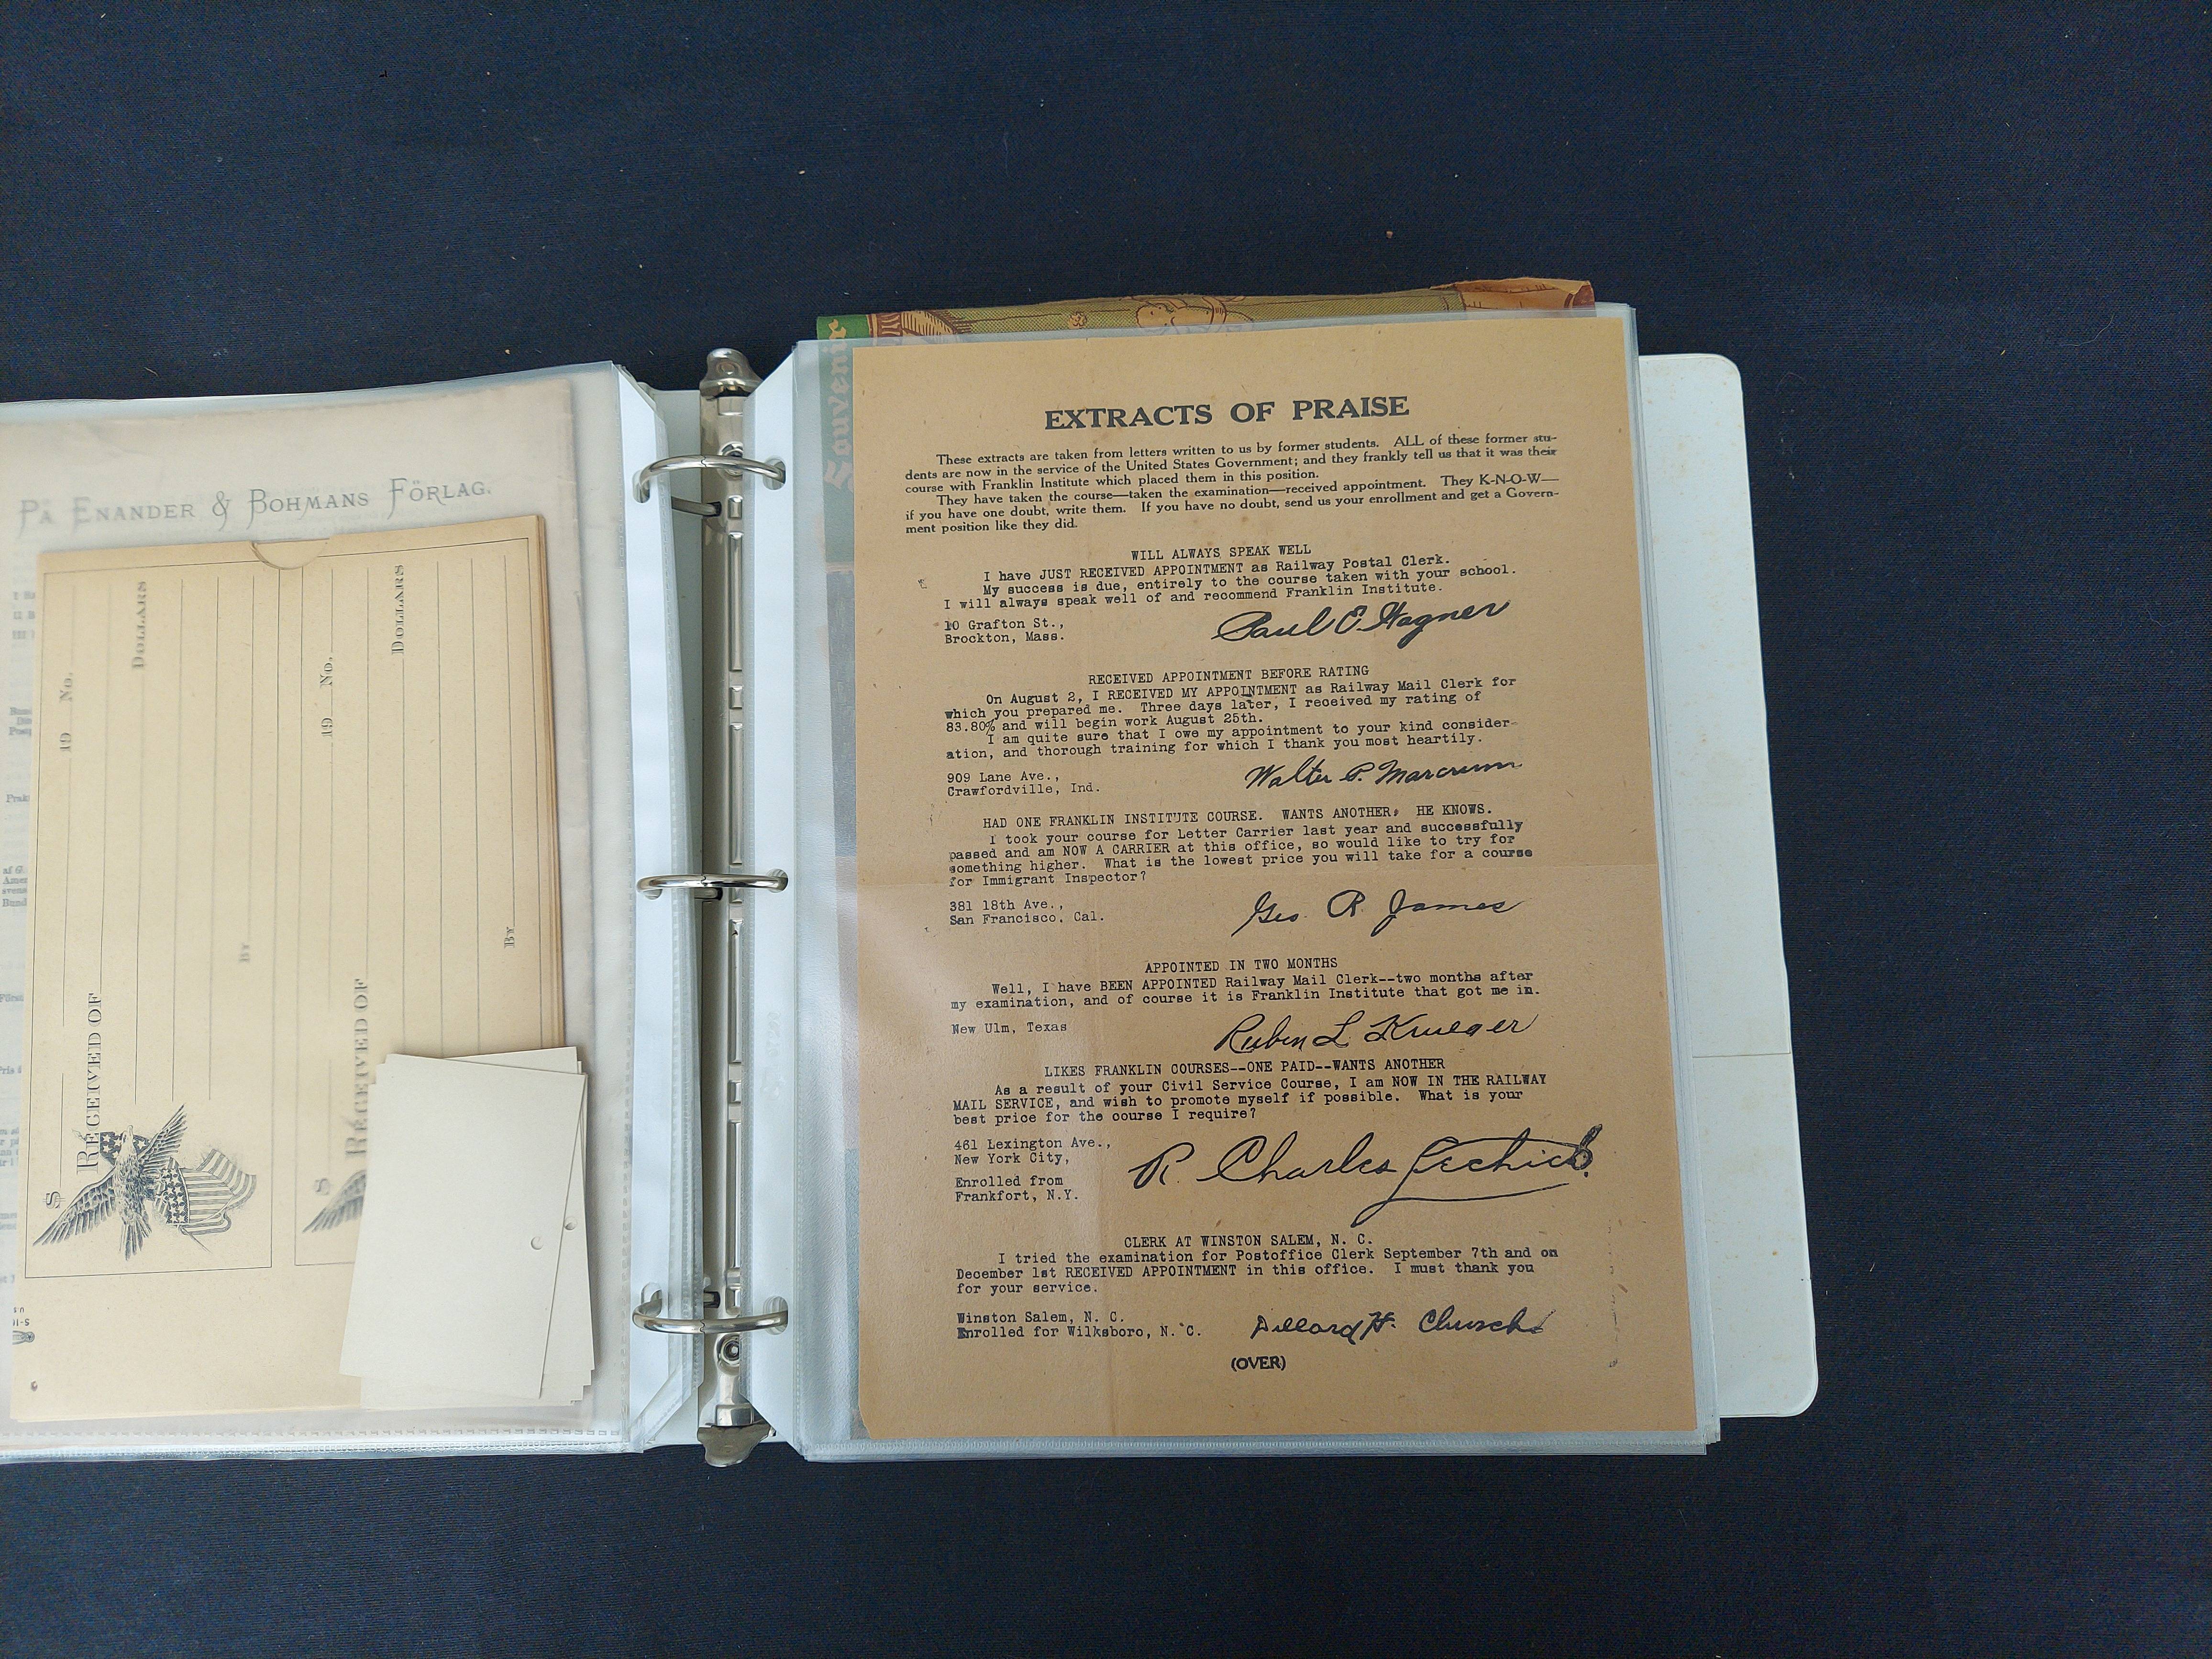 PÅ ENANDER & BOHMANS FÖRLAG.
No.
19
DOLLARS
RECEIVED OF
BY
$
No.
19
DOLLARS
RECEIVED OF
BY
$
Souvenir
EXTRACTS OF PRAISE
These extracts are taken from letters written to us by former students. ALL of these former stu-
dents are now in the service of the United States Government; and they frankly tell us that it was their
course with Franklin Institute which placed them in this position.
They have taken the course—taken the examination—received appointment. They K-N-O-W—
if you have one doubt, write them. If you have no doubt, send us your enrollment and get a Govern-
ment position like they did.
WILL ALWAYS SPEAK WELL
I have JUST RECEIVED APPOINTMENT as Railway Postal Clerk.
My success is due, entirely to the course taken with your school.
I will always speak well of and recommend Franklin Institute.
10 Grafton St.,
Brockton, Mass.
Paul E. Wagner
RECEIVED APPOINTMENT BEFORE RATING
On August 2, I RECEIVED MY APPOINTMENT as Railway Mail Clerk for
which you prepared me. Three days later, I received my rating of
83.80% and will begin work August 25th.
I am quite sure that I owe my appointment to your kind consider-
ation, and thorough training for which I thank you most heartily.
909 Lane Ave.,
Crawfordville, Ind.
Walter P. Marcrum
HAD ONE FRANKLIN INSTITUTE COURSE. WANTS ANOTHER. HE KNOWS.
I took your course for Letter Carrier last year and successfully
passed and am NOW A CARRIER at this office, so would like to try for
something higher. What is the lowest price you will take for a course
for Immigrant Inspector?
381 18th Ave.,
San Francisco, Cal.
Geo. R. James
APPOINTED IN TWO MONTHS
Well, I have BEEN APPOINTED Railway Mail Clerk--two months after
my examination, and of course it is Franklin Institute that got me in.
New Ulm, Texas
Ruben L. Krueger
LIKES FRANKLIN COURSES--ONE PAID--WANTS ANOTHER
As a result of your Civil Service Course, I am NOW IN THE RAILWAY
MAIL SERVICE, and wish to promote myself if possible. What is your
best price for the course I require?
461 Lexington Ave.,
New York City,
Enrolled from
Frankfort, N.Y.
R. Charles
CLERK AT WINSTON SALEM, N. C.
I tried the examination for Postoffice Clerk September 7th and on
December 1st RECEIVED APPOINTMENT in this office. I must thank you
for your service.
Winston Salem, N. C.
Enrolled for Wilksboro, N. C.
Dillard H. Church
(OVER)